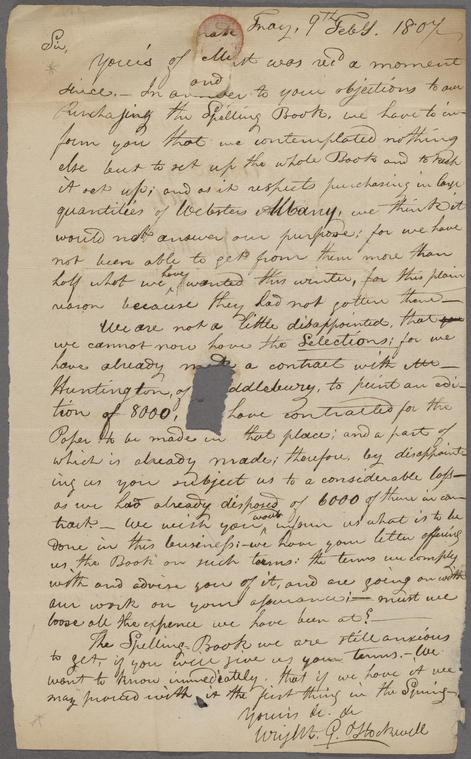 Troy, 9th Feby. 1807
Sir,
Yours of Inst was recd a moment
since. — In answer to your objections to our
and
Purchasing the Spelling Book, we have to in-
form you that we contemplated nothing
else but to set up the whole Book and to keep
it set up; and as it respects purchasing in large
quantities of Websters Albany, we think it
would not answer our purpose; for we have
not been able to get from them more than
half what we have wanted this winter, for this plain
reason because they had not gotten them —
We are not a little disappointed, that
we cannot now have the Selections; for we
have already made a contract with Mr.
Huntington, of ddlebury, to print an edi-
tion of 8000, have contracted for the
Paper to be made in that place; and a part of
which is already made; therefore, by disappoint-
ing us you subject us to a considerable loss —
as we had already disposed of 6000 of them in con-
tract — We wish you would inform us what is to be
done in this business; — we have your letter offering
us, the Book on such terms: the terms we comply
with and advise you of it, and are going on with
our work on your assurance; — must we
loose all the expence we have been at? —
The Spelling-Book we are still anxious
to get, if you will give us your terms. — We
want to know immediately, that if we have it we
may proceed with it the first thing in the Spring —
Yours &c. &c
Wright, G. & Stockwell